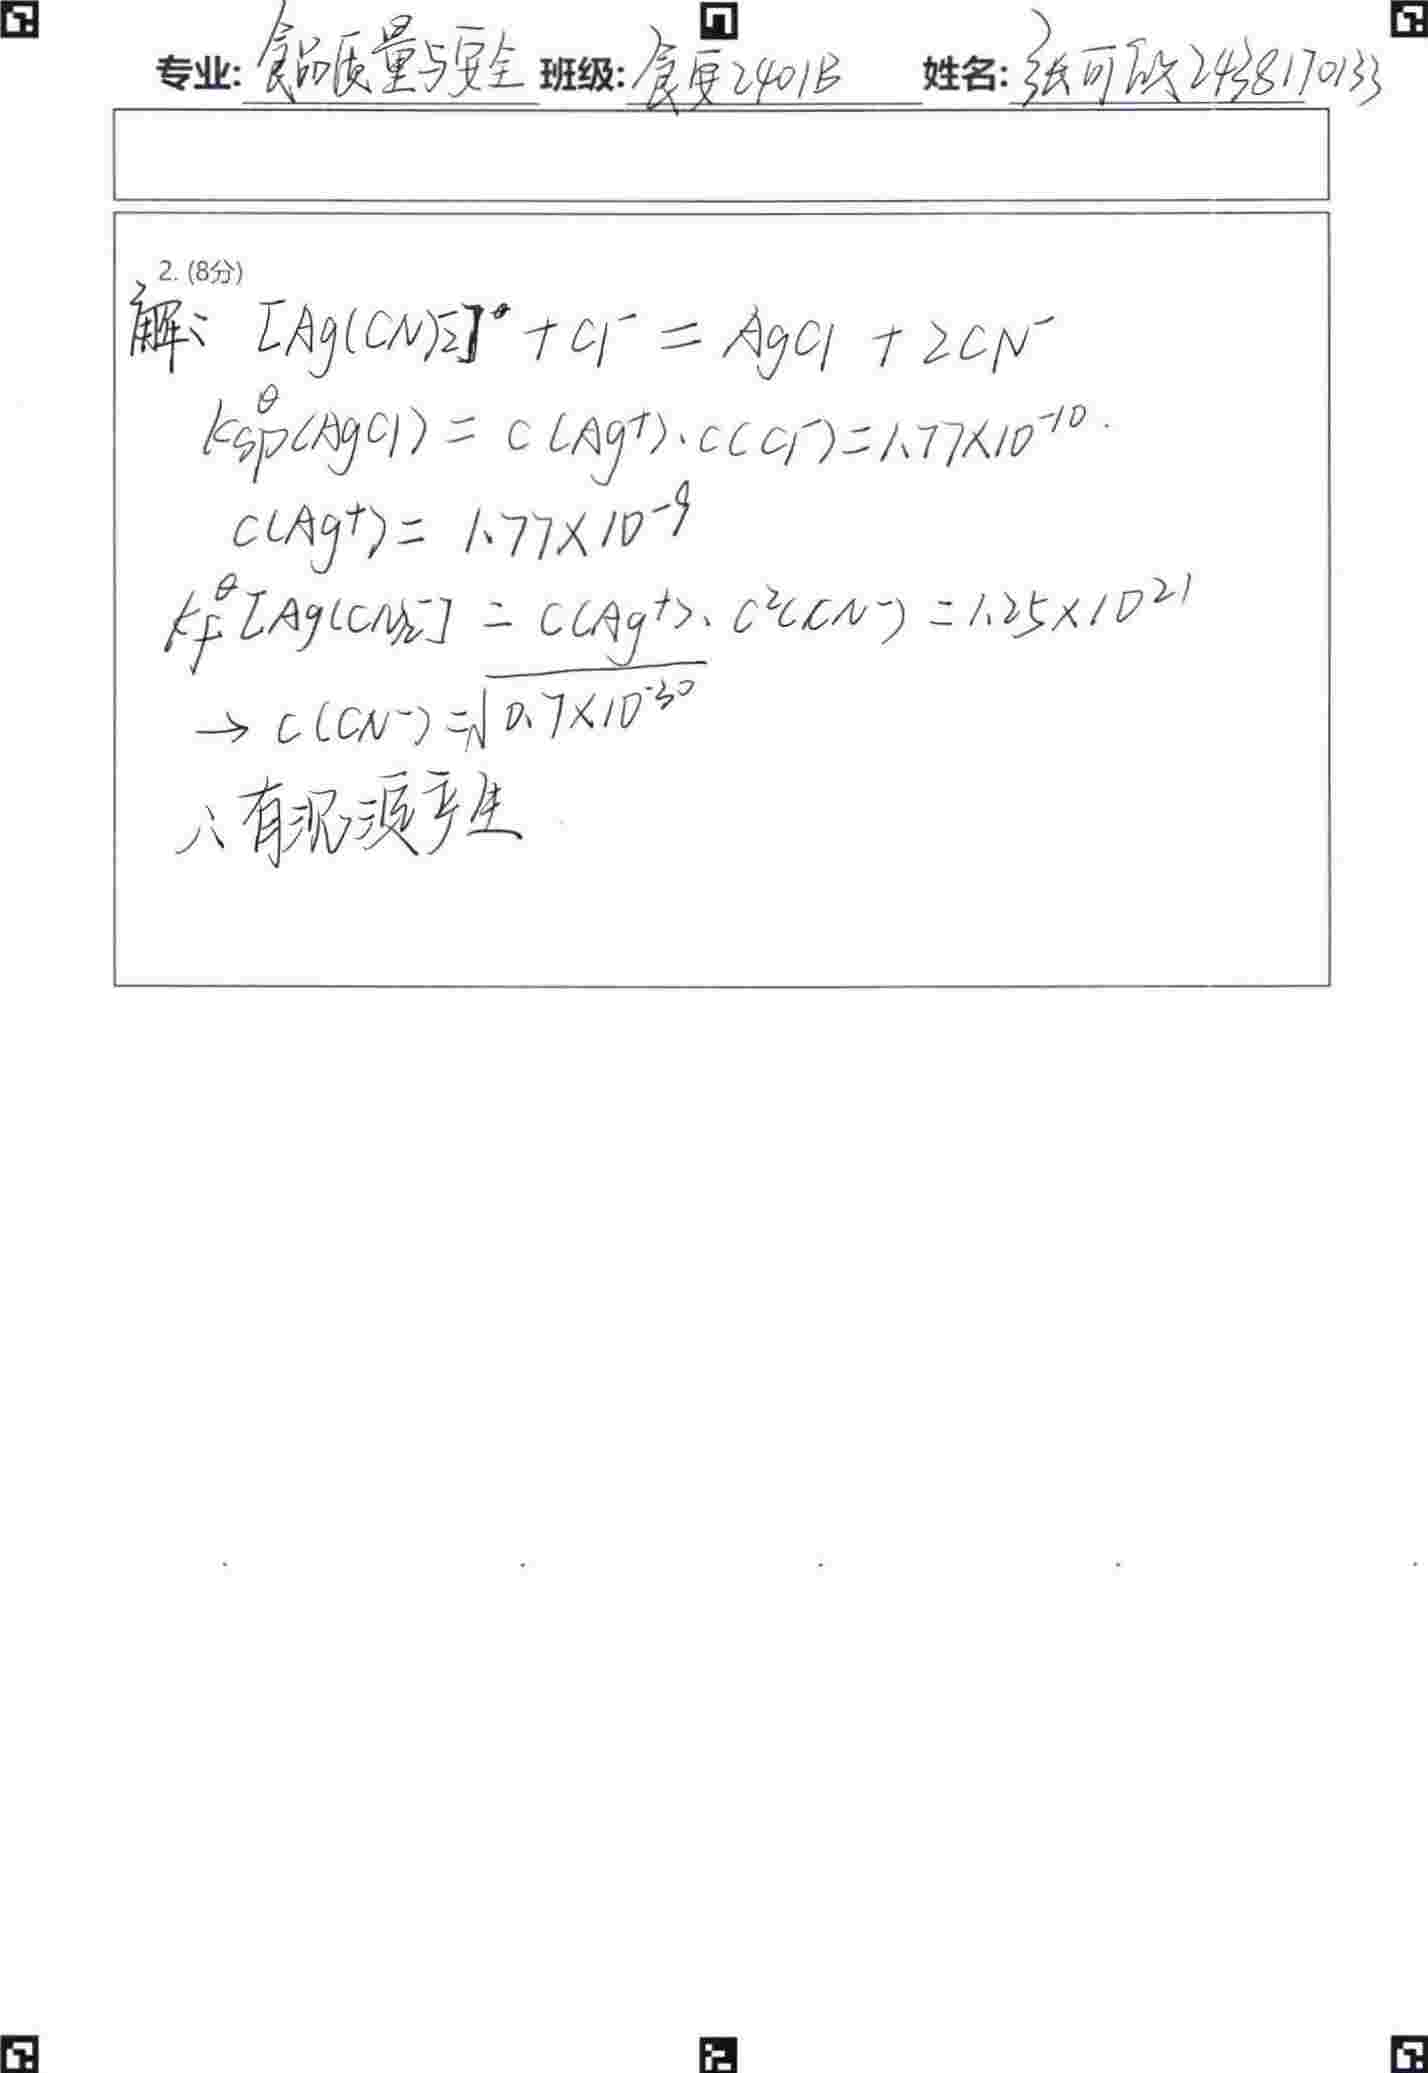 专业: 食品质量与安全 班级: 食质2401B 姓名: 张可欣2438170133
2. (8分)
解: [Ag(CN)₂⁻] + Cl⁻ = AgCl + 2CN⁻
Ksp^θ(AgCl) = C(Ag⁺)·C(Cl⁻) = 1.77×10⁻¹⁰.
C(Ag⁺) = 1.77×10⁻⁹
Kf^θ[Ag(CN)₂⁻] = C(Ag⁺)·C²(CN⁻) = 1.25×10²¹
→ C(CN⁻) = √0.7×10⁻³⁰
∴有沉淀产生